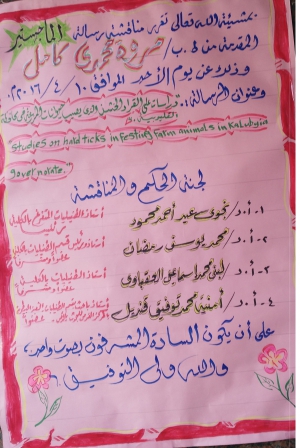 بمشيئة الله تعالى تقرر مناقشة رسالة الماجستير
المقدمة من ط.ب/ مروة مجدى كامل
وذلك عن يوم الأحد الموافق ١٠ / ٤ / ٢٠١٦
وعنوان الرسالة:
دراسات على القراد الجامد الذى يصيب حيوانات المزرعة فى محافظة
القليوبية
studies on hard ticks infesting farm animals in Kalubyia
governorate.
لجنة الحكم والمناقشة
١- أ.د/ نجوى عيد أحمد محمود
أستاذ الطفيليات بالكلية
٢- أ.د/ محمد يوسف رمضان
أستاذ ورئيس قسم الطفيليات بالكلية
٣- أ.د/ لبنى محمد اسماعيل العقباوى
أستاذ الطفيليات بالكلية
٤- أ.د/ أمنية محمد توفيق قنديل
على أن يكون السادة المشرفون بصوت واحد،
والله ولى التوفيق